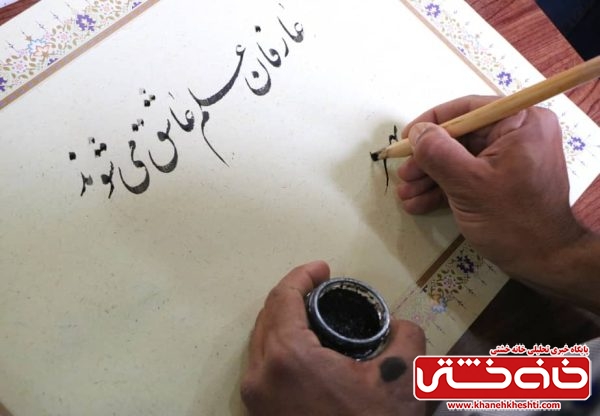 عارفان علم عاشق می شوند
پایگاه خبری تحلیلی خانه خشتی
خانه خشتی
www.khanehkheshti.com